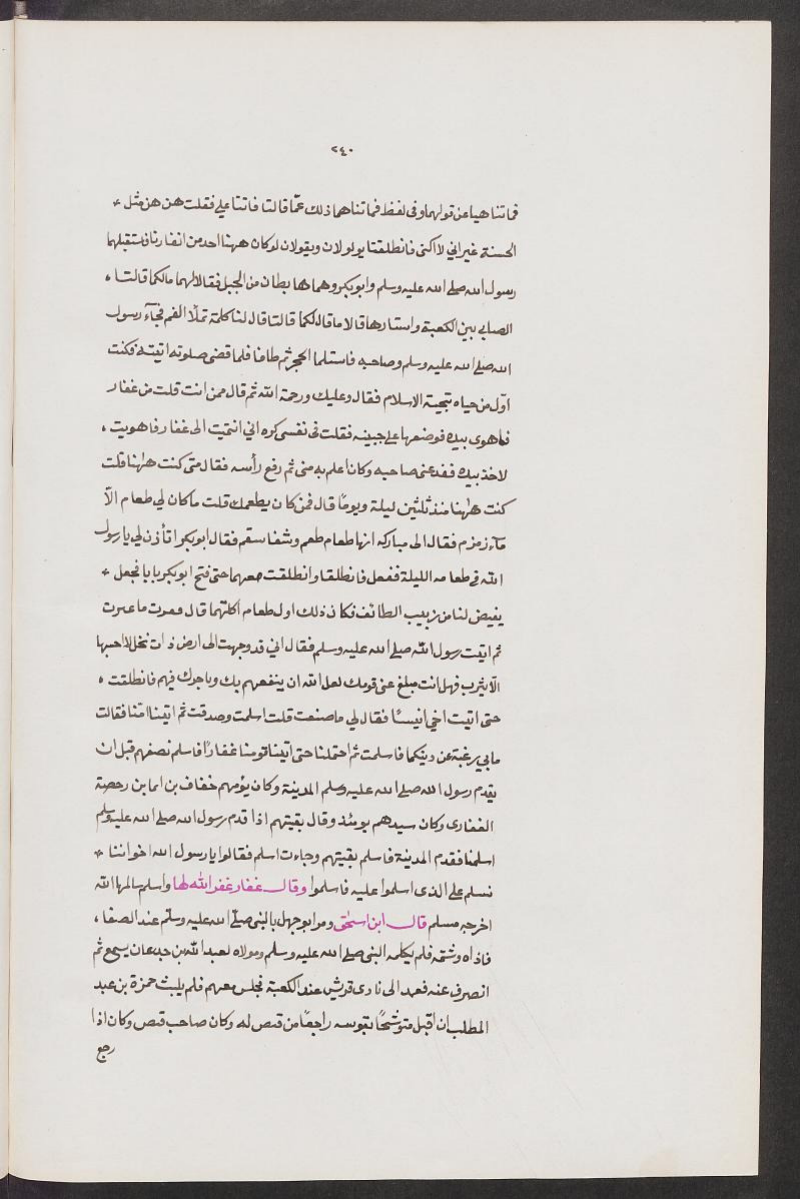 ٢٤٠
فما تناهيا عن قولهما وفى لفظ فما تناهما ذلك عما قالتا فاتتا علي فقلت هن هن مثل *
الخسبة غير اني لا اكنى فانطلقتا يولولان ويقولان لو كان ههنا احد من انفارنا فاستقبلهما
رسول الله صلى الله عليه وسلم وابو بكر وهما هابطان من الجبل فقالا لهما مالكما قالتا ،
الصابي بين الكعبة واستارها قالا ما قال لكما قالتا قال لنا كلمة تملأ الفم فجآء رسول
الله صلى الله عليه وسلم وصاحبه فاستلما الحجر ثم طافا فلما قضى صلوته اتيته فكنت
اول من حياه بتحية الاسلام فقال وعليك ورحمة الله ثم قال ممن انت قلت من غفار
فاهوى بيده فوضعها على جبينه فقلت فى نفسى كره اني انتميت الى غفار فاهويت ،
لاخذ بيده فقد عنى صاحبه وكان اعلم به منى ثم رفع رأسه فقال متى كنت ههنا قلت
كنت ههنا منذ ثلثين ليلة ويومًا قال فمن كان يطعمك قلت ما كان لي طعام الّا
مآء زمزم فقال الى مباركه انها طعام طعم وشفا سقم فقال ابو بكر اتأذن لي يا رسول
الله في طعامه الليلة ففعل فانطلقا وانطلقت معهما حتى فتح ابو بكر بابا فجعل *
يفيض لنا من زبيب الطائف فكان ذلك اول طعام اكلتهما قال فعبرت ما عبرت
ثم اتيت رسول الله صلى الله عليه وسلم فقال اني قد وجهت الى ارض ذات نخل لا احسبها
الّا يثرب فهل انت مبلغ عنى قومك لعل الله ان ينفعهم بك وياجرك فيهم فانطلقت ،
حتى اتيت اخي انيسًا فقال لي ما صنعت قلت اسلمت وصدقت ثم اتينا امّنا فقالت
مابي رغبة عن دينكما فاسلمت ثم احتملنا حتى اتينا قومنا غفارًا فاسلم نصفهم قبل ان
يقدم رسول الله صلى الله عليه وسلم المدينة وكان يؤمهم خفاف بن ايما بن رحصة
الغفارى وكان سيدهم يومئذ وقال بقيتهم اذا قدم رسول الله صلى الله عليه وسلم
اسلمنا فقدم المدينة فاسلم بقيتهم وجاءت اسلم فقالوا يا رسول الله اخواننا *
نسلم على الذى اسلموا عليه فاسلموا وقال غفار غفر الله لها واسلم سالمها الله
اخرجه مسلم قال ابن اسحق ومر ابو جهل بالنبى صلى الله عليه وسلم عند الصفا ،
فاذاه وشتمه فلم يكلمه النبى صلى الله عليه وسلم ومولاه لعبد الله بن جدعان يسمع ثم
انصرف عنه فعمد الى نادى قريش عند الكعبة فجلس معهم فلم يلبث حمزة بن عبد
المطلب ان اقبل متوشحًا بقوسه راجعًا من قنص له وكان صاحب قنص وكان اذا
رجع